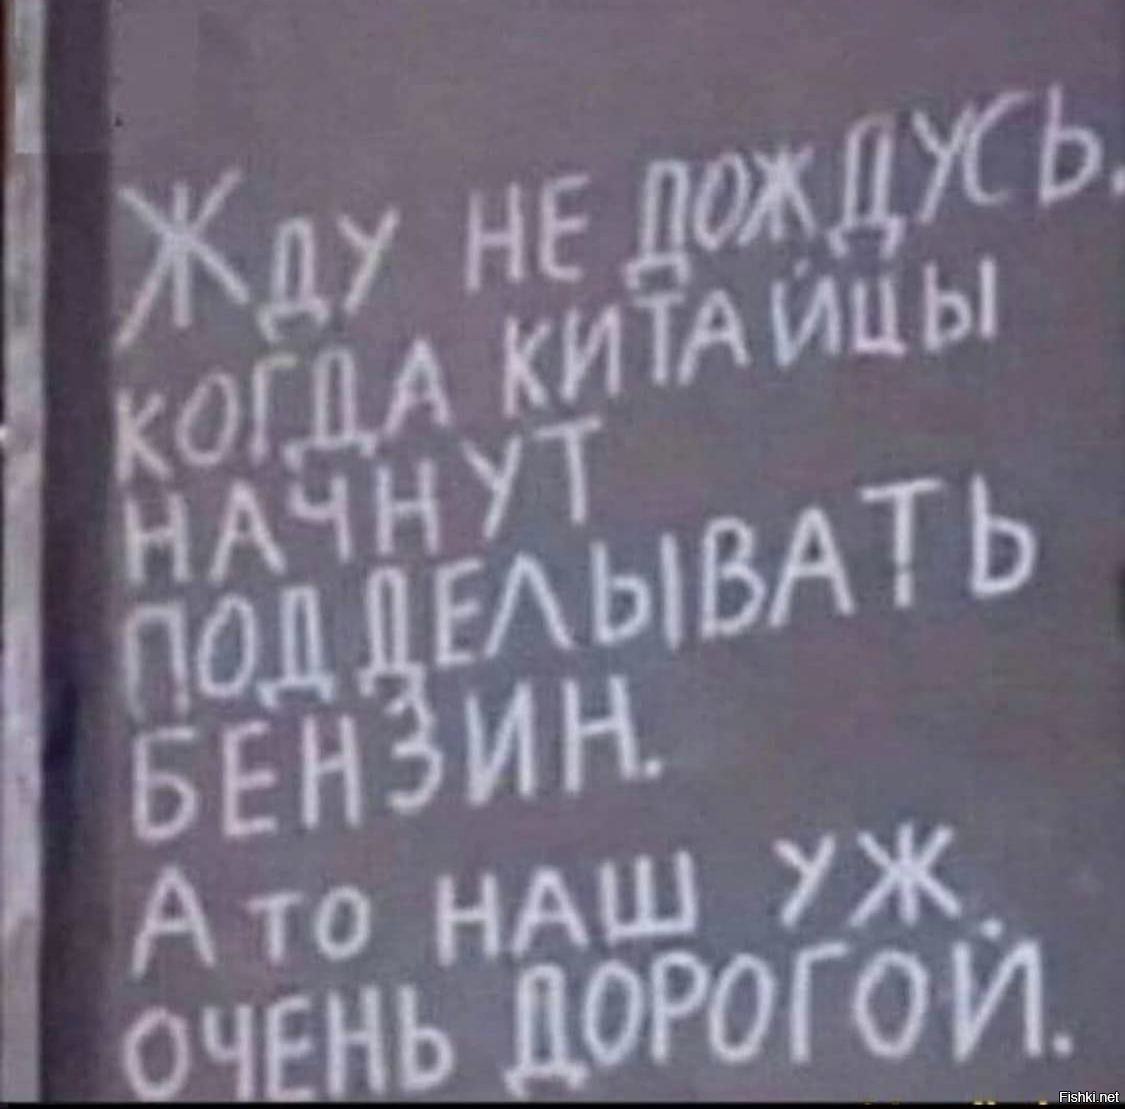 Жду НЕ ДОЖДУСЬ.
КОГДА КИТАЙЦЫ
НАЧНУТ
ПОДДЕЛЫВАТЬ
БЕНЗИН.
А ТО НАШ УЖ.
ОЧЕНЬ ДОРОГОЙ.
Fishki.net